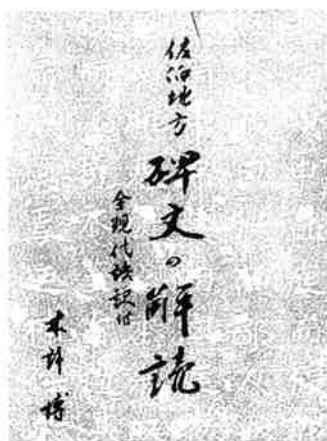 佐伯地方
碑文の解読
全現代語訳付
木許 博